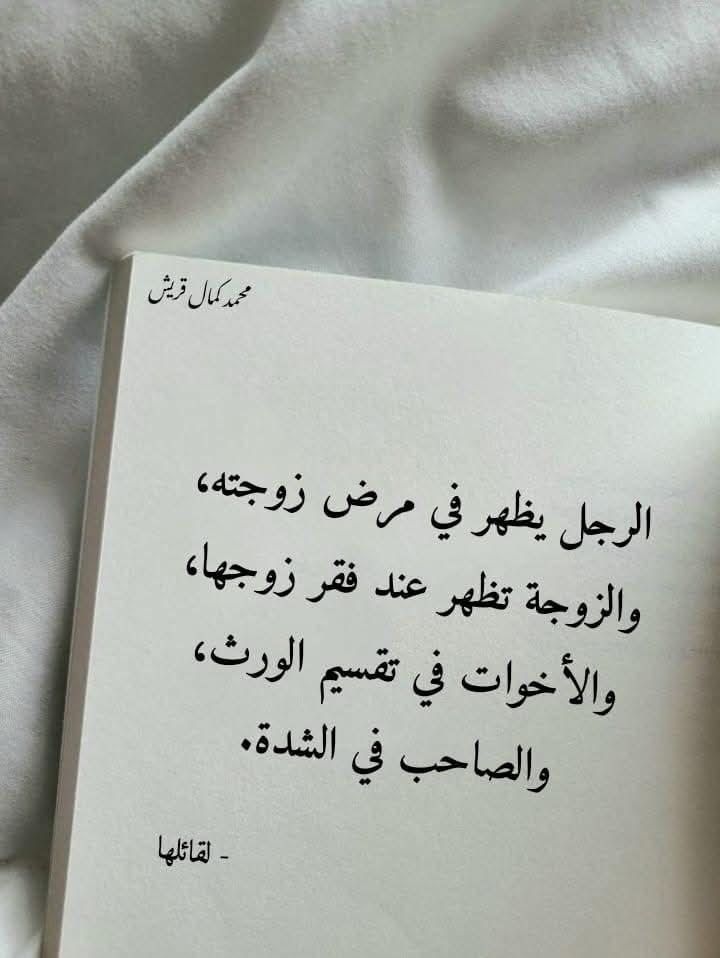 محمد كمال قريش
الرجل يظهر في مرض زوجته،
والزوجة تظهر عند فقر زوجها،
والأخوات في تقسيم الورث،
والصاحب في الشدة.
- لقائلها